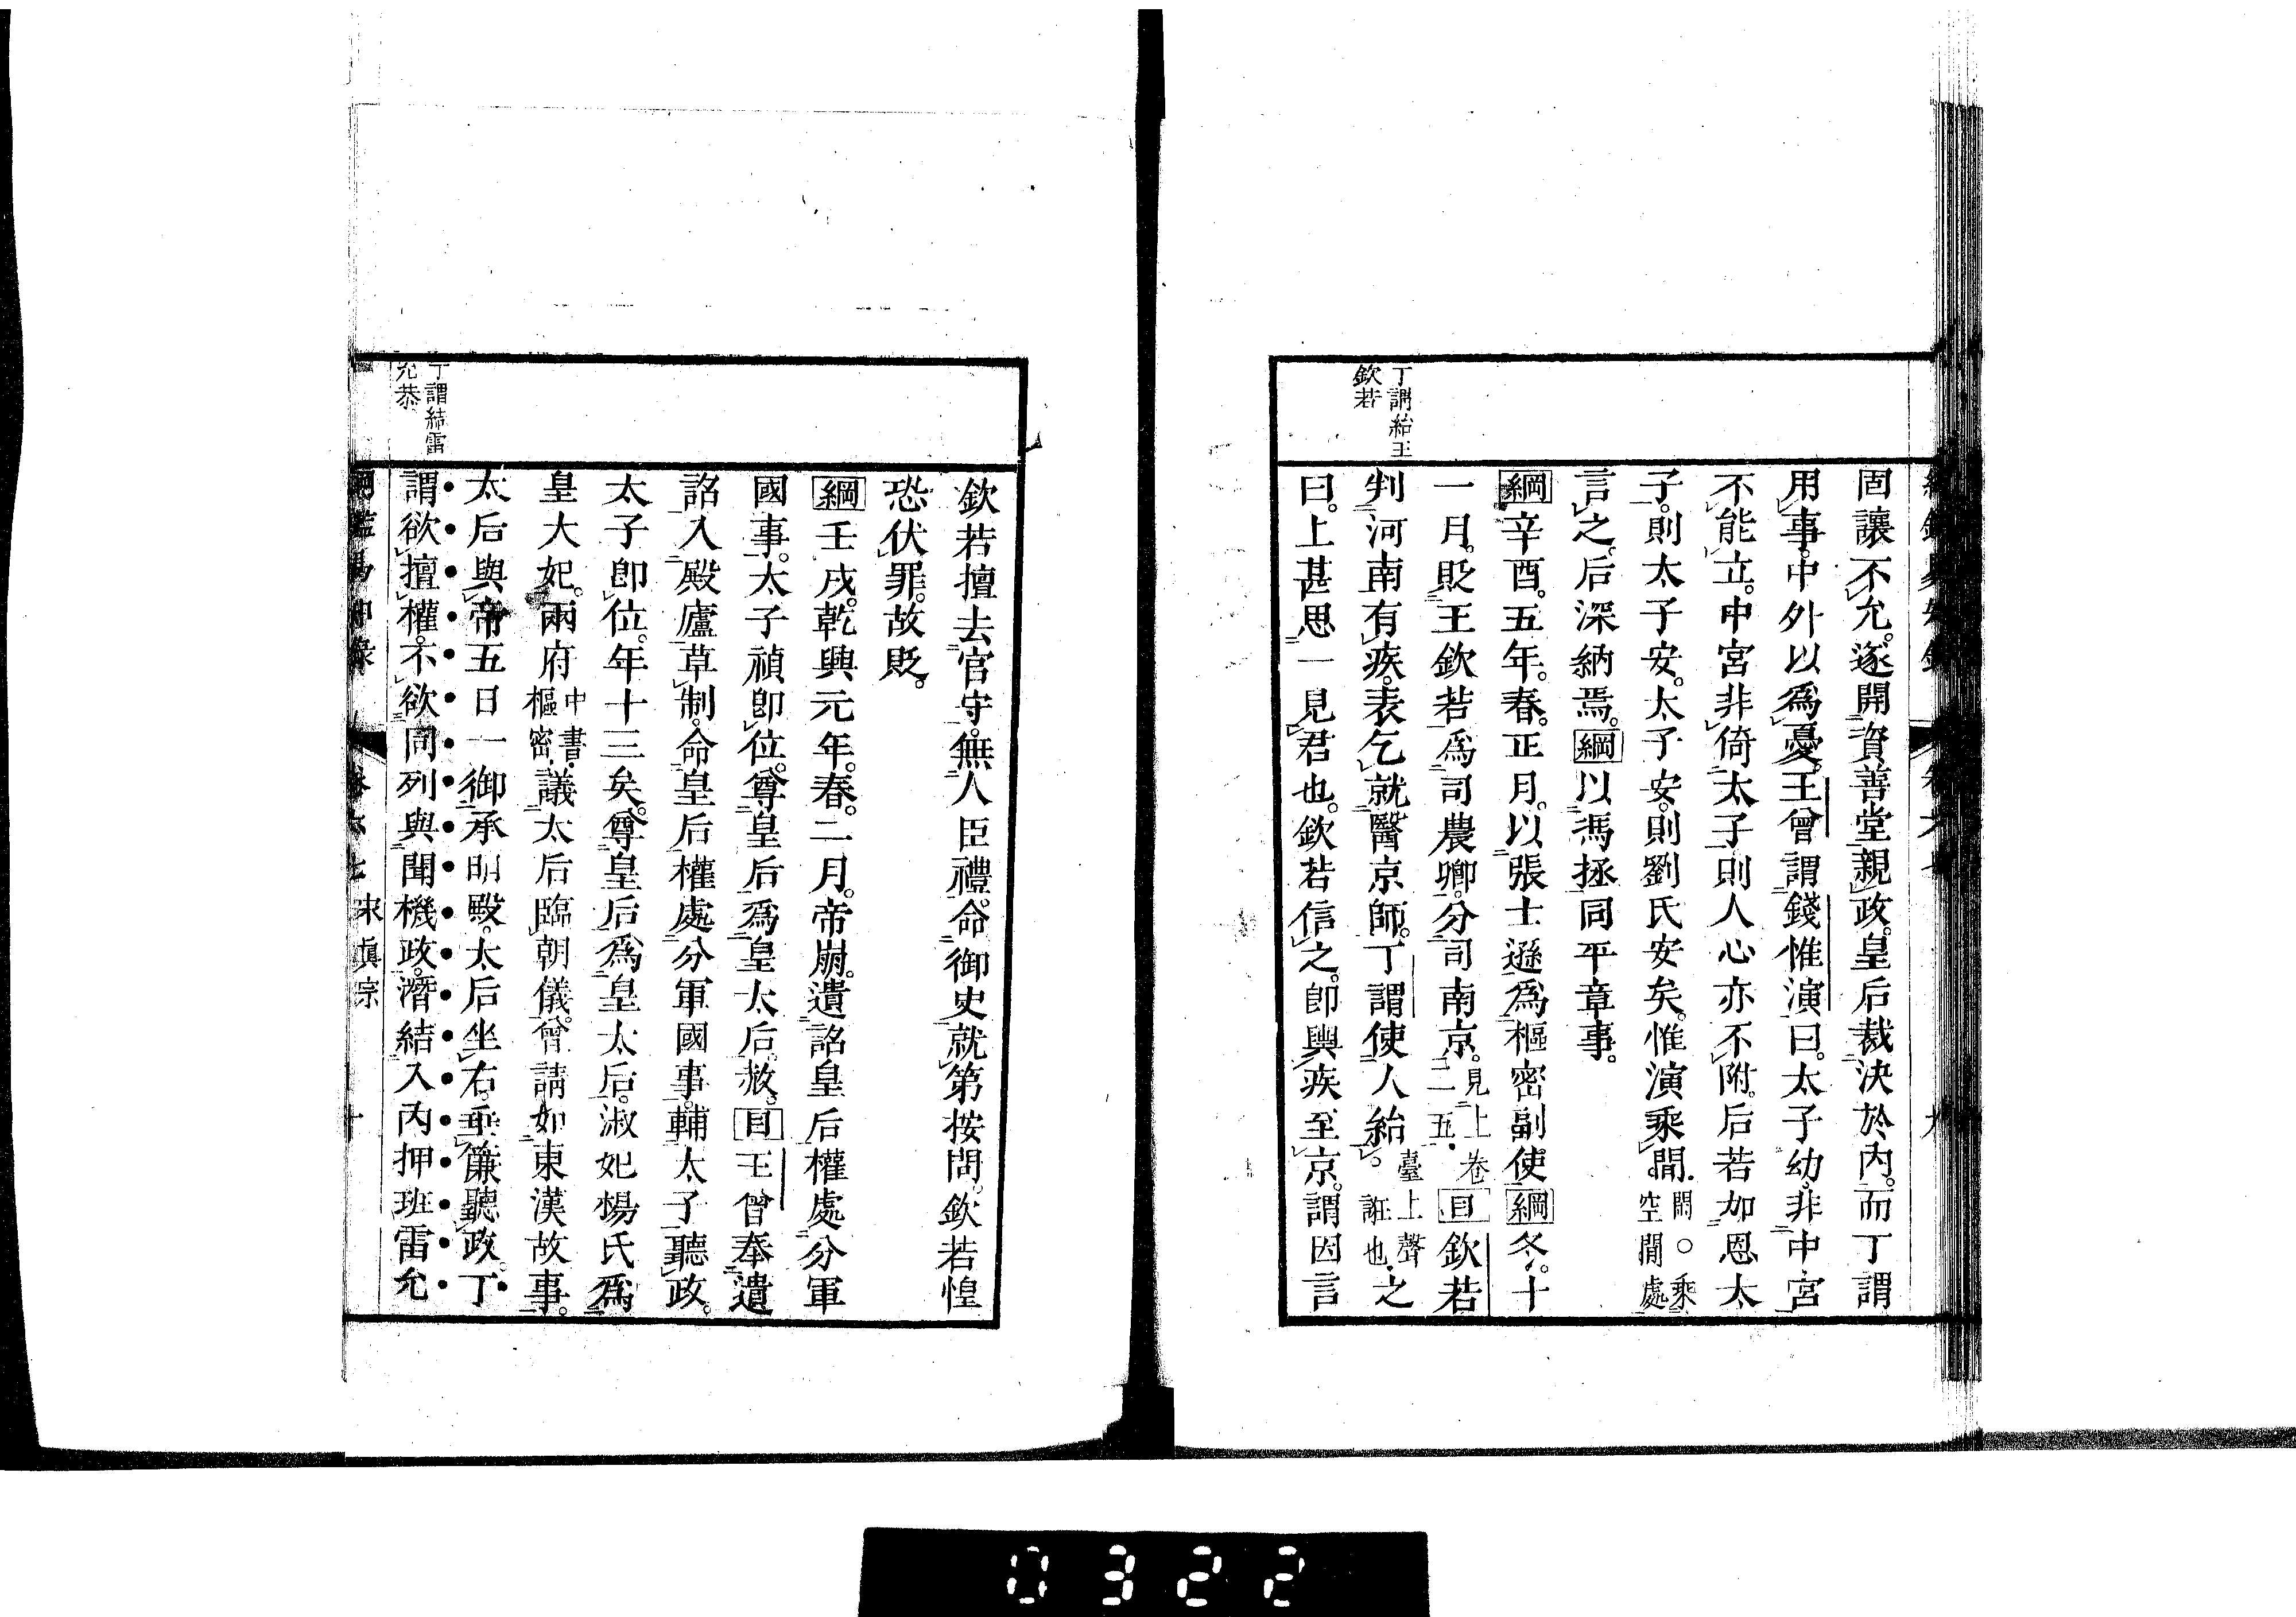 丁謂紿王
欽若
固讓不允。遂開資善堂親政。皇后裁決於內。而丁謂
用事。中外以爲憂。王曾謂錢惟演曰。太子幼。非中宮
不能立。中宮非倚太子。則人心亦不附。后若加恩太
子。則太子安。太子安。則劉氏安矣。惟演乘閒。閒○乘空閒處
言之。后深納焉。綱以馮拯同平章事。
綱辛酉。五年。春。正月。以張士遜爲樞密副使綱冬。十
一月。貶王欽若爲司農卿。分司南京。見上卷二五.目欽若
判河南有疾。表乞就醫京師。丁謂使人紿。臺上聲誑也.之
曰。上甚思一見君也。欽若信之。卽輿疾至京。謂因言
欽若擅去官守。無人臣禮。命御史就第按問。欽若惶
恐伏罪。故貶。
綱壬戌。乾興元年。春。二月。帝崩。遺詔皇后權處分軍
國事。太子禎卽位。尊皇后爲皇太后。赦。目王曾奉遺
詔入殿廬草制。命皇后權處分軍國事。輔太子聽政。
太子卽位。年十三矣。尊皇后爲皇太后。淑妃楊氏爲
皇大妃。兩府中書.樞密.議太后臨朝儀。曾請如東漢故事。
太后與帝五日一御承明殿。太后坐右。垂簾聽政。丁
謂欲擅權。不欲同列與聞機政。潛結入內押班雷允
丁謂結雷
允恭
宋眞宗 十
0322